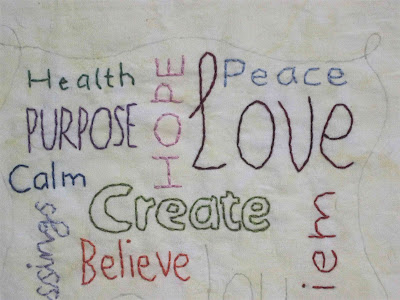 Health
HOPE
Peace
Love
PURPOSE
Calm
Create
ssings
Believe
iem